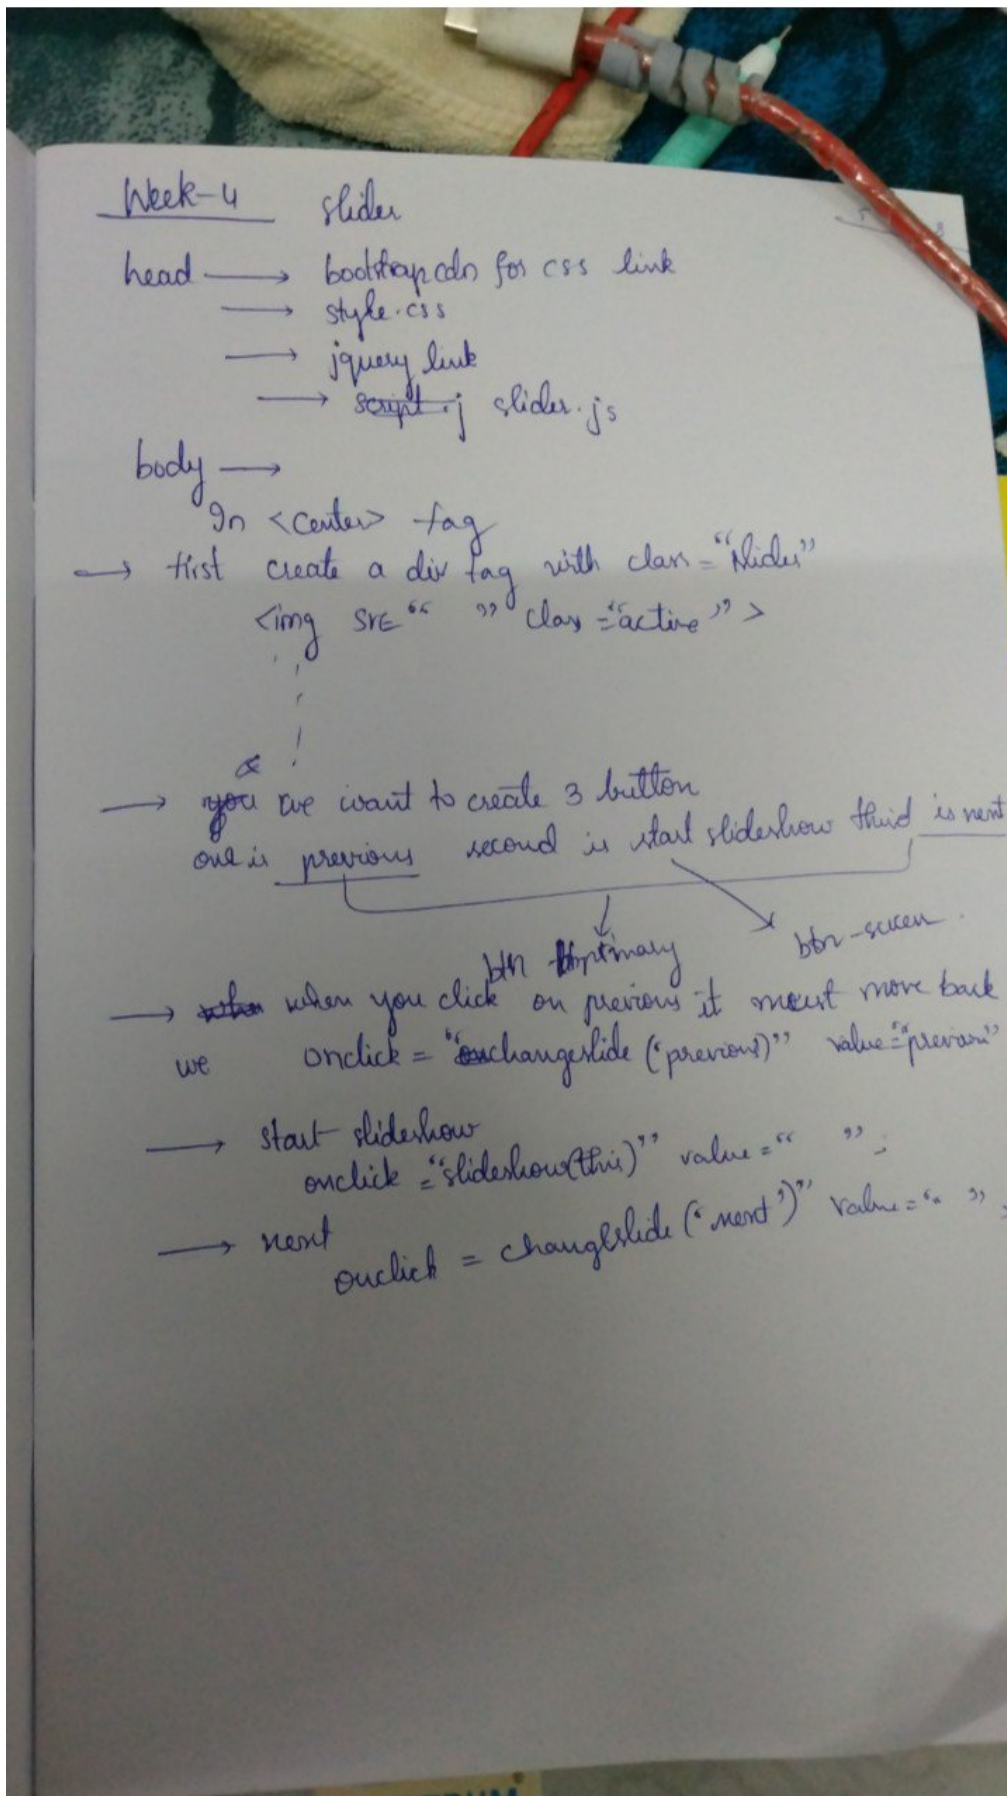 Week-4 slider
head → bootstrap cdn for css link
→ style.css
→ jquery link
→ script.j slider.js
body →
In <center> tag
→ first create a div tag with class="slider"
<img src=" " class="active">
→ you we want to create 3 button
one is previous second is start slideshow third is next
btn-primary
→ when you click on previous it must move back
we onclick = "changeslide('previous)" value="previous"
→ start slideshow
onclick = "slideshow(this)" value=" ";
→ next
onclick = changeslide('next')" value=" ";